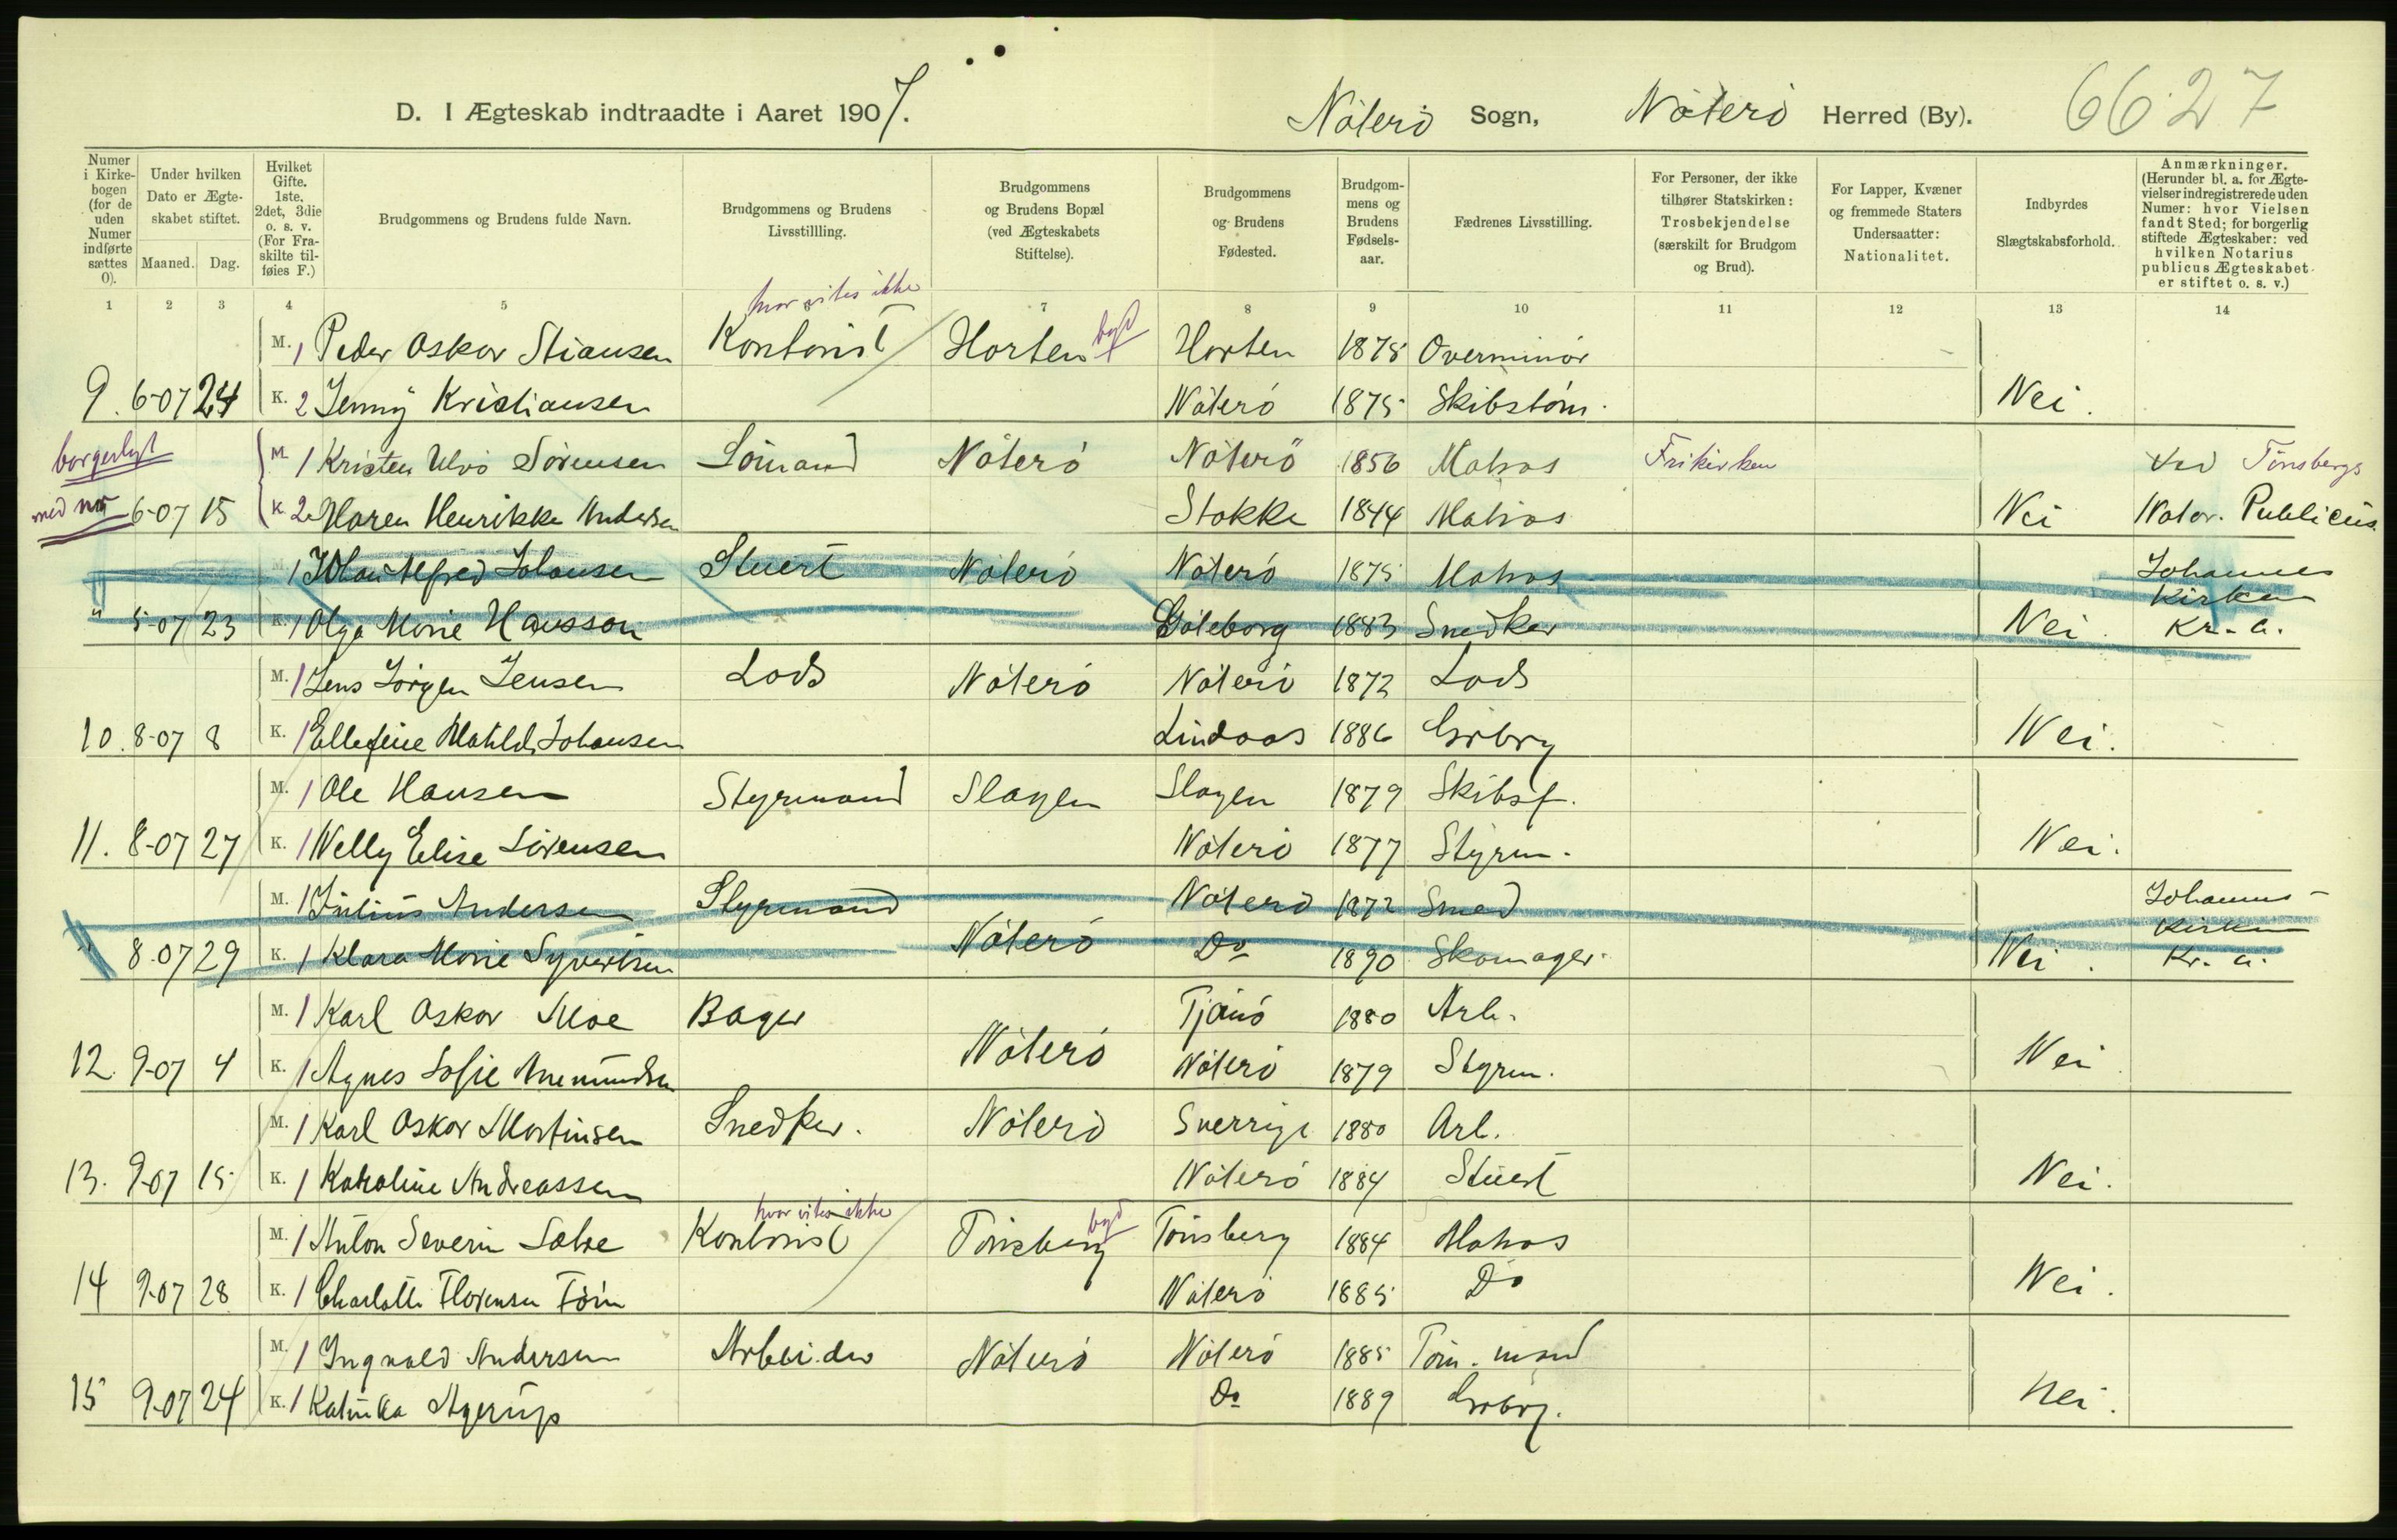 D. I Ægteskab indtraadte i Aaret 1907. Nöterö Sogn, Nöterö Herred (By). 6627
Numer i Kirkebogen (for de uden Numer indførte sættes 0).
Under hvilken Dato er Ægteskabet stiftet.
Maaned. Dag.
Hvilket Gifte. 1ste. 2det, 3die o. s. v. (For Fraskilte tilføies F.)
Brudgommens og Brudens fulde Navn.
Brudgommens og Brudens Livsstillling.
Brudgommens og Brudens Bopæl (ved Ægteskabets Stiftelse).
Brudgommens og Brudens Fødested.
Brudgommens og Brudens Fødselsaar.
Fædrenes Livsstilling.
For Personer, der ikke tilhører Statskirken: Trosbekjendelse (særskilt for Brudgom og Brud).
For Lapper, Kvæner og fremmede Staters Undersaatter: Nationalitet.
Indbyrdes Slægtskabsforhold.
Anmærkninger. (Herunder bl. a. for Ægtevielser indregistrerede uden Numer: hvor Vielsen fandt Sted; for borgerlig stiftede Ægteskaber: ved hvilken Notarius publicus Ægteskabet er stiftet o. s. v.)
1 2 3 4 5 7 8 9 10 11 12 13 14
hvor vites ikke
M. 1 Peder Oskar Stiansen Kontorist Horten by Horten 1878 Overminör
9. 6-07 24 K. 2 Jenny Kristiansen Nöterö 1875 Skibstöm. Nei.
borgerligt M. 1 Kristen Ulvö Sörensen Sömand Nöterö Nöterö 1856 Matros Frikirken Ved Tönsbergs
med 6-07 15 K. 2 Maren Henrikke Andersen Stokke 1844 Matros Nei Notar. Publicus
M. 1 Johan Alfred Johansen Stuert Nöterö Nöterö 1875 Matros Johannes
Kirken
" 5-07 23 K. 1 Olga Marie Hansson Göteborg 1883 Snedker Nei. Kr. a.
M. 1 Jens Jörgen Jensen Lods Nöterö Nöterö 1872 Lods
10. 8-07 8 K. 1 Ellefine Matilde Johansen Lindaas 1886 Grbrg Nei.
M. 1 Ole Hansen Styrmand Slagen Slagen 1879 Skibsf.
11. 8-07 27 K. 1 Nelly Elise Sörensen Nöterö 1877 Styrm. Nei.
M. 1 Julius Andersen Styrmand Nöterö 1872 Smed Johannes
Kirken
" 8-07 29 K. 1 Klara Marie Syvertsen Nöterö Do 1890 Skomager. Nei. Kr. a.
M. 1 Karl Oskar Moe Bager Tjömö 1880 Arb.
12. 9-07 4 K. 1 Agnes Sofie Anemundsen Nöterö Nöterö 1879 Styrm. Nei
M. 1 Karl Oskar Martinsen Snedker. Nöterö Sverrige 1880 Arb.
13. 9-07 15 K. 1 Karoline Andreassen Nöterö 1884 Stuert Nei.
hvor vites ikke
M. 1 Anton Severin Sætre Kontorist Tönsberg by Tönsberg 1884 Matros
14 9-07 28 K. 1 Charlotte Florense Föin Nöterö 1885 Do Nei.
M. 1 Ingvald Andersen Arbeider Nöterö Nöterö 1885 Töm. mand
15 9-07 24 K. 1 Katinka Agerup Do 1889 Grbrg. Nei.